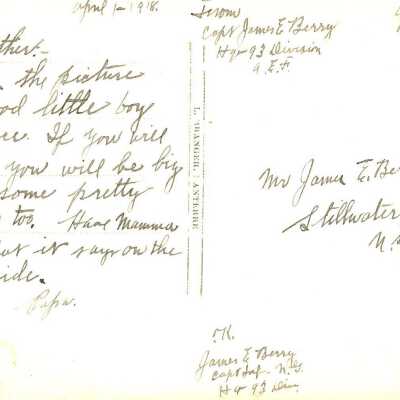 April 1 - 1918.
the picture
little boy
If you will
you will be big
some pretty
too. Have Mamma
it says on the
ide.
Papa.
L. 'HANGER, ANTERRE
From
Capt James E Berry
Hq 93 Division
A. E. F.
Mr James E. Be
Stillwater
O.K.
James E Berry
Capt Inf. N.G.
Hq 93 Div